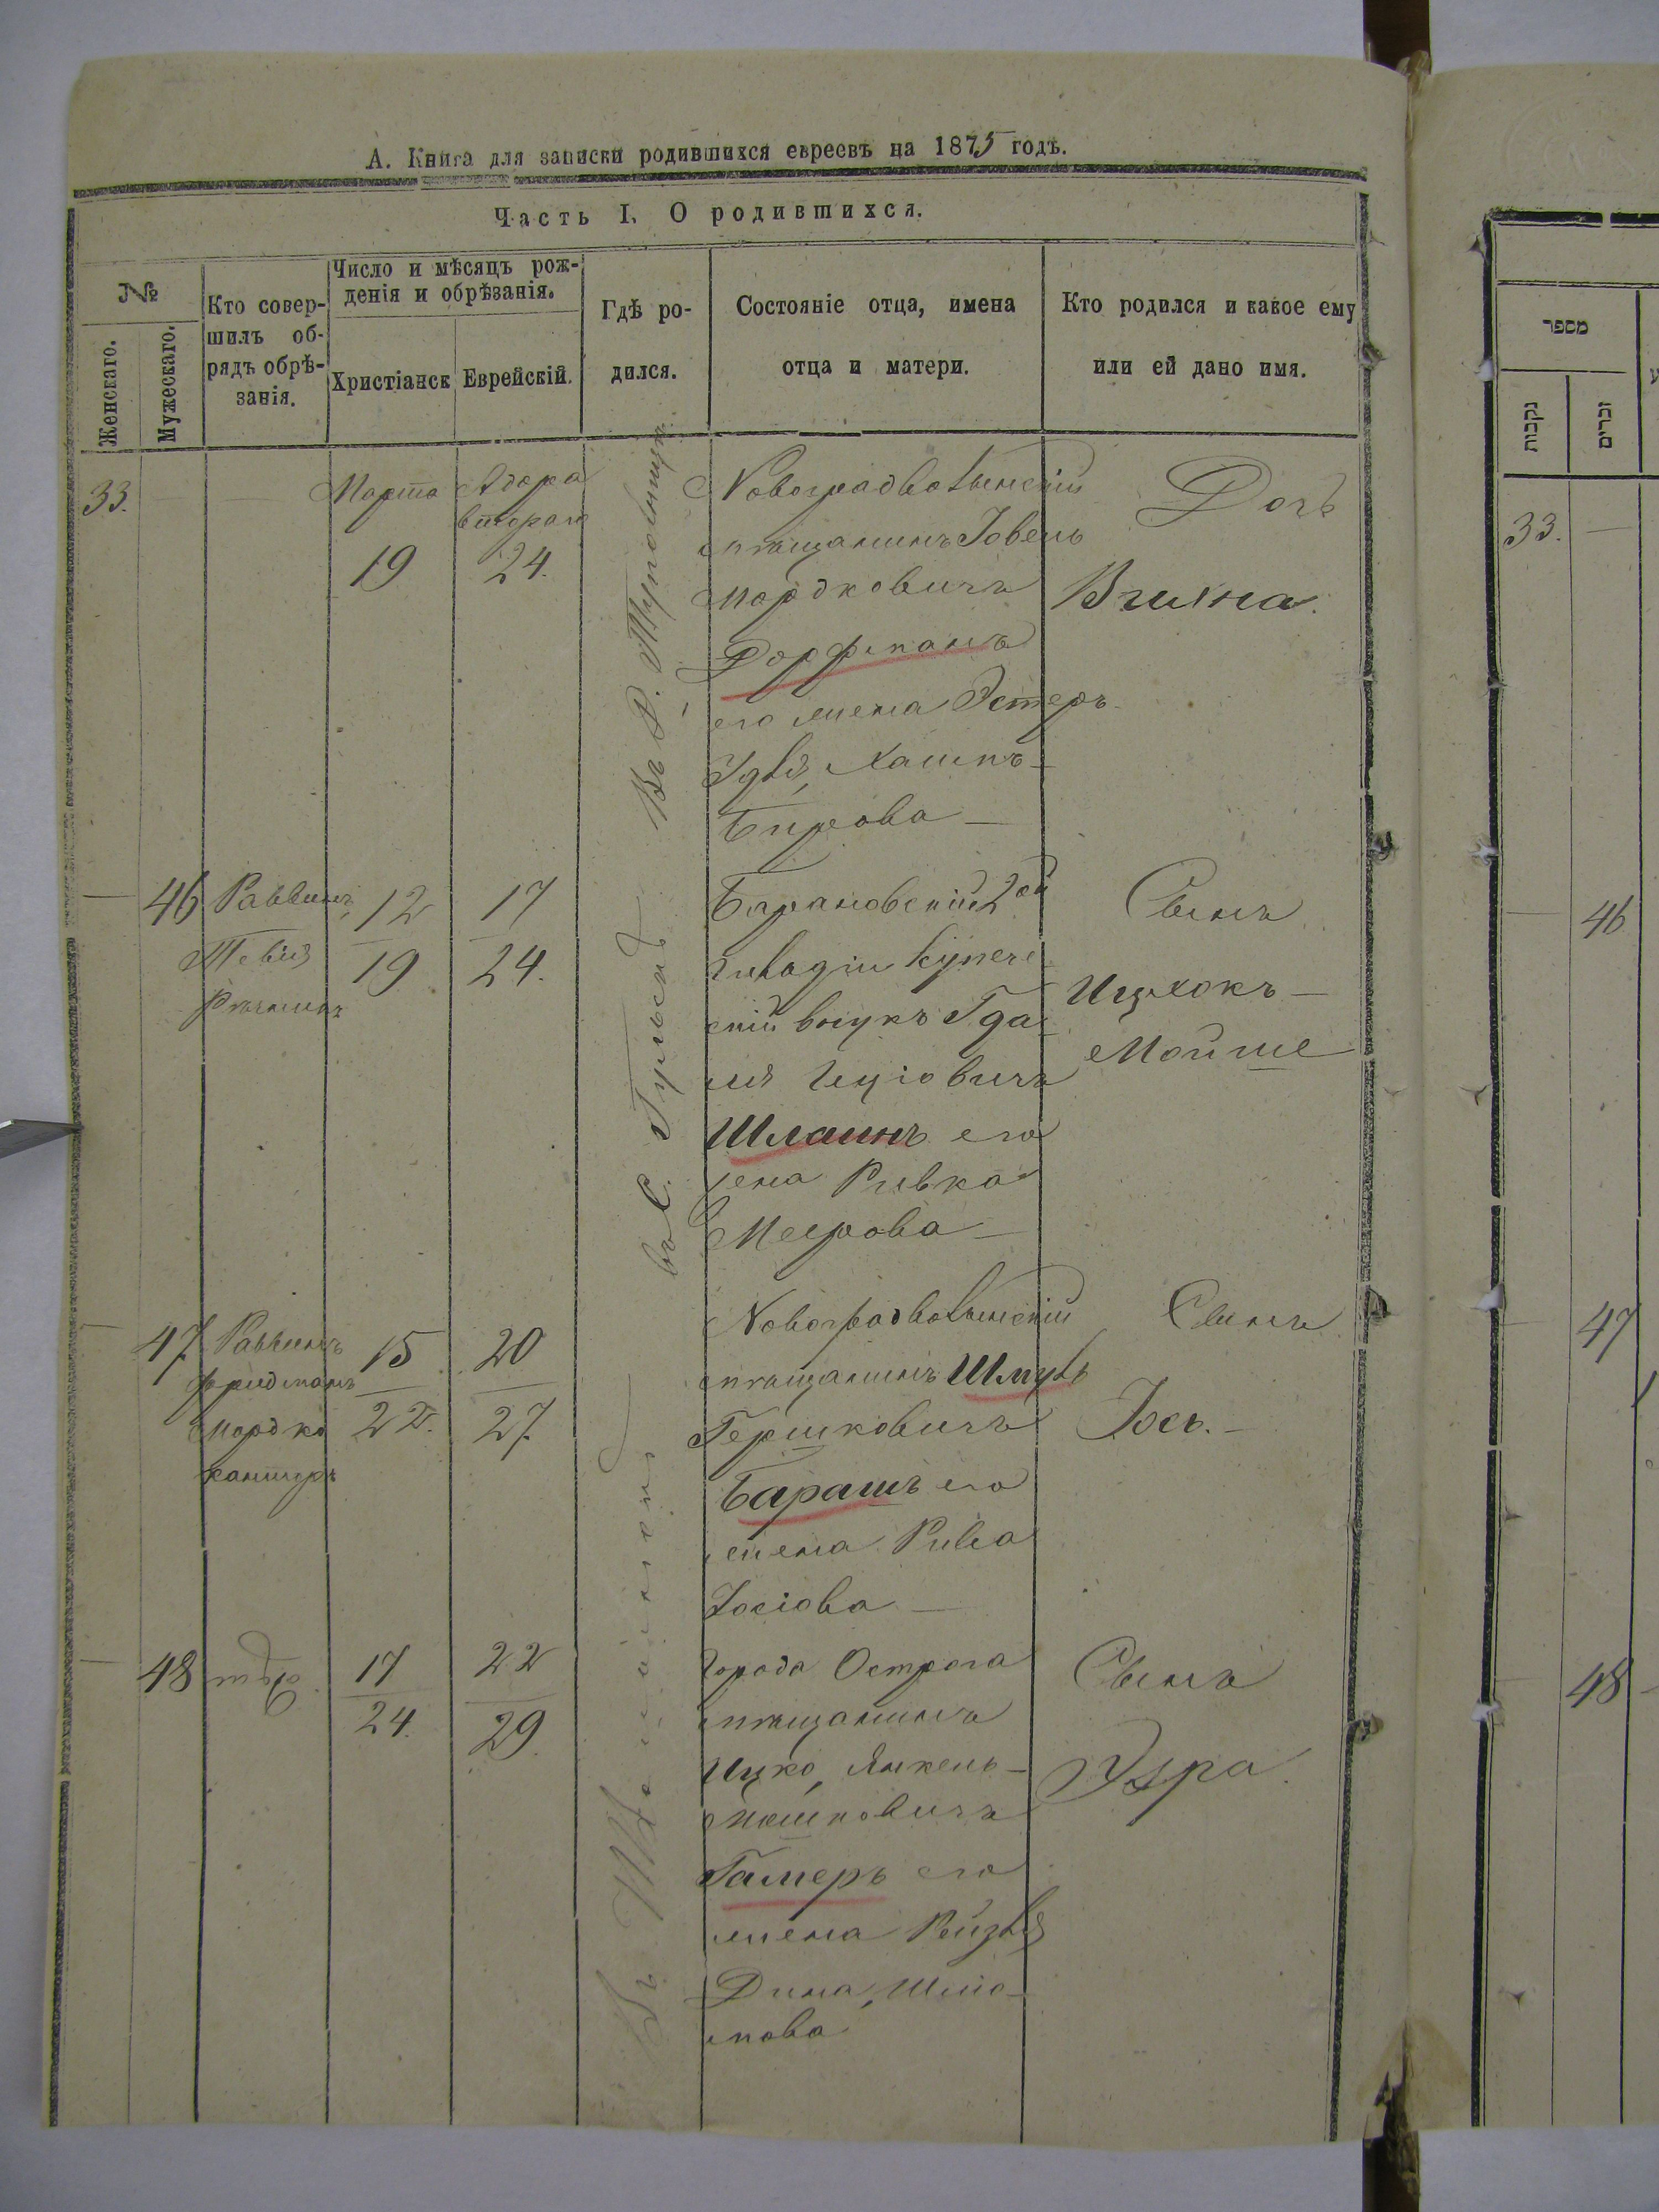 А. Книга для записки родившихся евреевъ на 1875 годъ.
Часть I. О родившихся.
№
Женскаго.
Мужескаго.
Кто совер-
шилъ об-
рядъ обрѣ-
занія.
Число и мѣсяцъ рож-
денія и обрѣзанія.
Христіанск
Еврейскій.
Гдѣ ро-
дился.
Состояніе отца, имена
отца и матери.
Кто родился и какое ему
или ей дано имя.
33.
Марта
19
Адора
втораго
24.
Новоградволынскій
мѣщанинъ Іовель
Мордковичъ
Дорфманъ
его жена Эстеръ
Хаимъ-
Берова
Дочь
46
Раввинъ
Тевія
12
19
17
24.
въ С.
Барановскій 2ой
гильдіи купече
скій внукъ Гда
ля Ицковичъ
Шлаинъ его
жена Ривка
Меерова
Сынъ
Ицхокъ
Мойше
47
Раввинъ
Фридманъ
Мордко
Кантуръ
15
22.
20
27
Новоградволынскій
мѣщанинъ Шмуль
Гершковичъ
Барашъ его
жена Ривка
Іосіова
Сынъ
Іось.
48
17
24.
22
29.
Города Острога
мѣщанинъ
Ицко, Янкель-
Мошковичъ
Гамеръ его
жена Рейзля
Дина, Шлио-
мова
Сынъ
Эзра.
מספר
נקבות
זכרים
33.
46
47
48